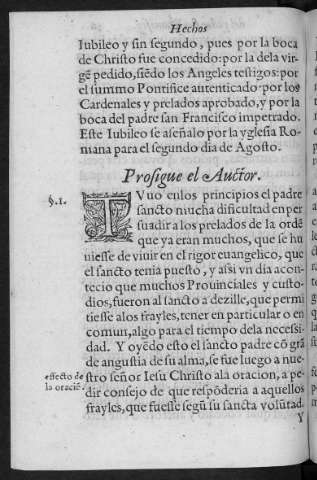 Hechos
Iubileo y sin segundo, pues por la boca
de Christo fue concedido: por la dela vir-
gẽ pedido, siẽdo los Angeles testigos: por
el summo Pontifice autenticado: por los
Cardenales y prelados aprobado, y por la
boca del padre san Francisco impetrado.
Este Iubileo se aseñalo por la yglesia Ro-
mana para el segundo dia de Agosto.
Prosigue el Auctor.
§.1.
TVuo enlos principios el padre
sancto mucha dificultad en per
suadir a los prelados de la ordẽ
que ya eran muchos, que se hu
uiesse de viuir en el rigor euangelico, que
el sancto tenia puesto, y assi vn dia acon-
tecio que muchos Prouinciales y custo-
dios, fueron al sancto a dezille, que permi
tiesse alos frayles, tener en particular o en
comun, algo para el tiempo dela necessi-
dad. Y oyẽdo esto el sancto padre cõ grã
de angustia de su alma, se fue luego a nue-
effecto de
la oraciẽ.
stro señor Iesu Christo ala oracion, a pe-
dir consejo de que respõderia a aquellos
frayles, que fuesse segũ su sancta volũtad.
Y